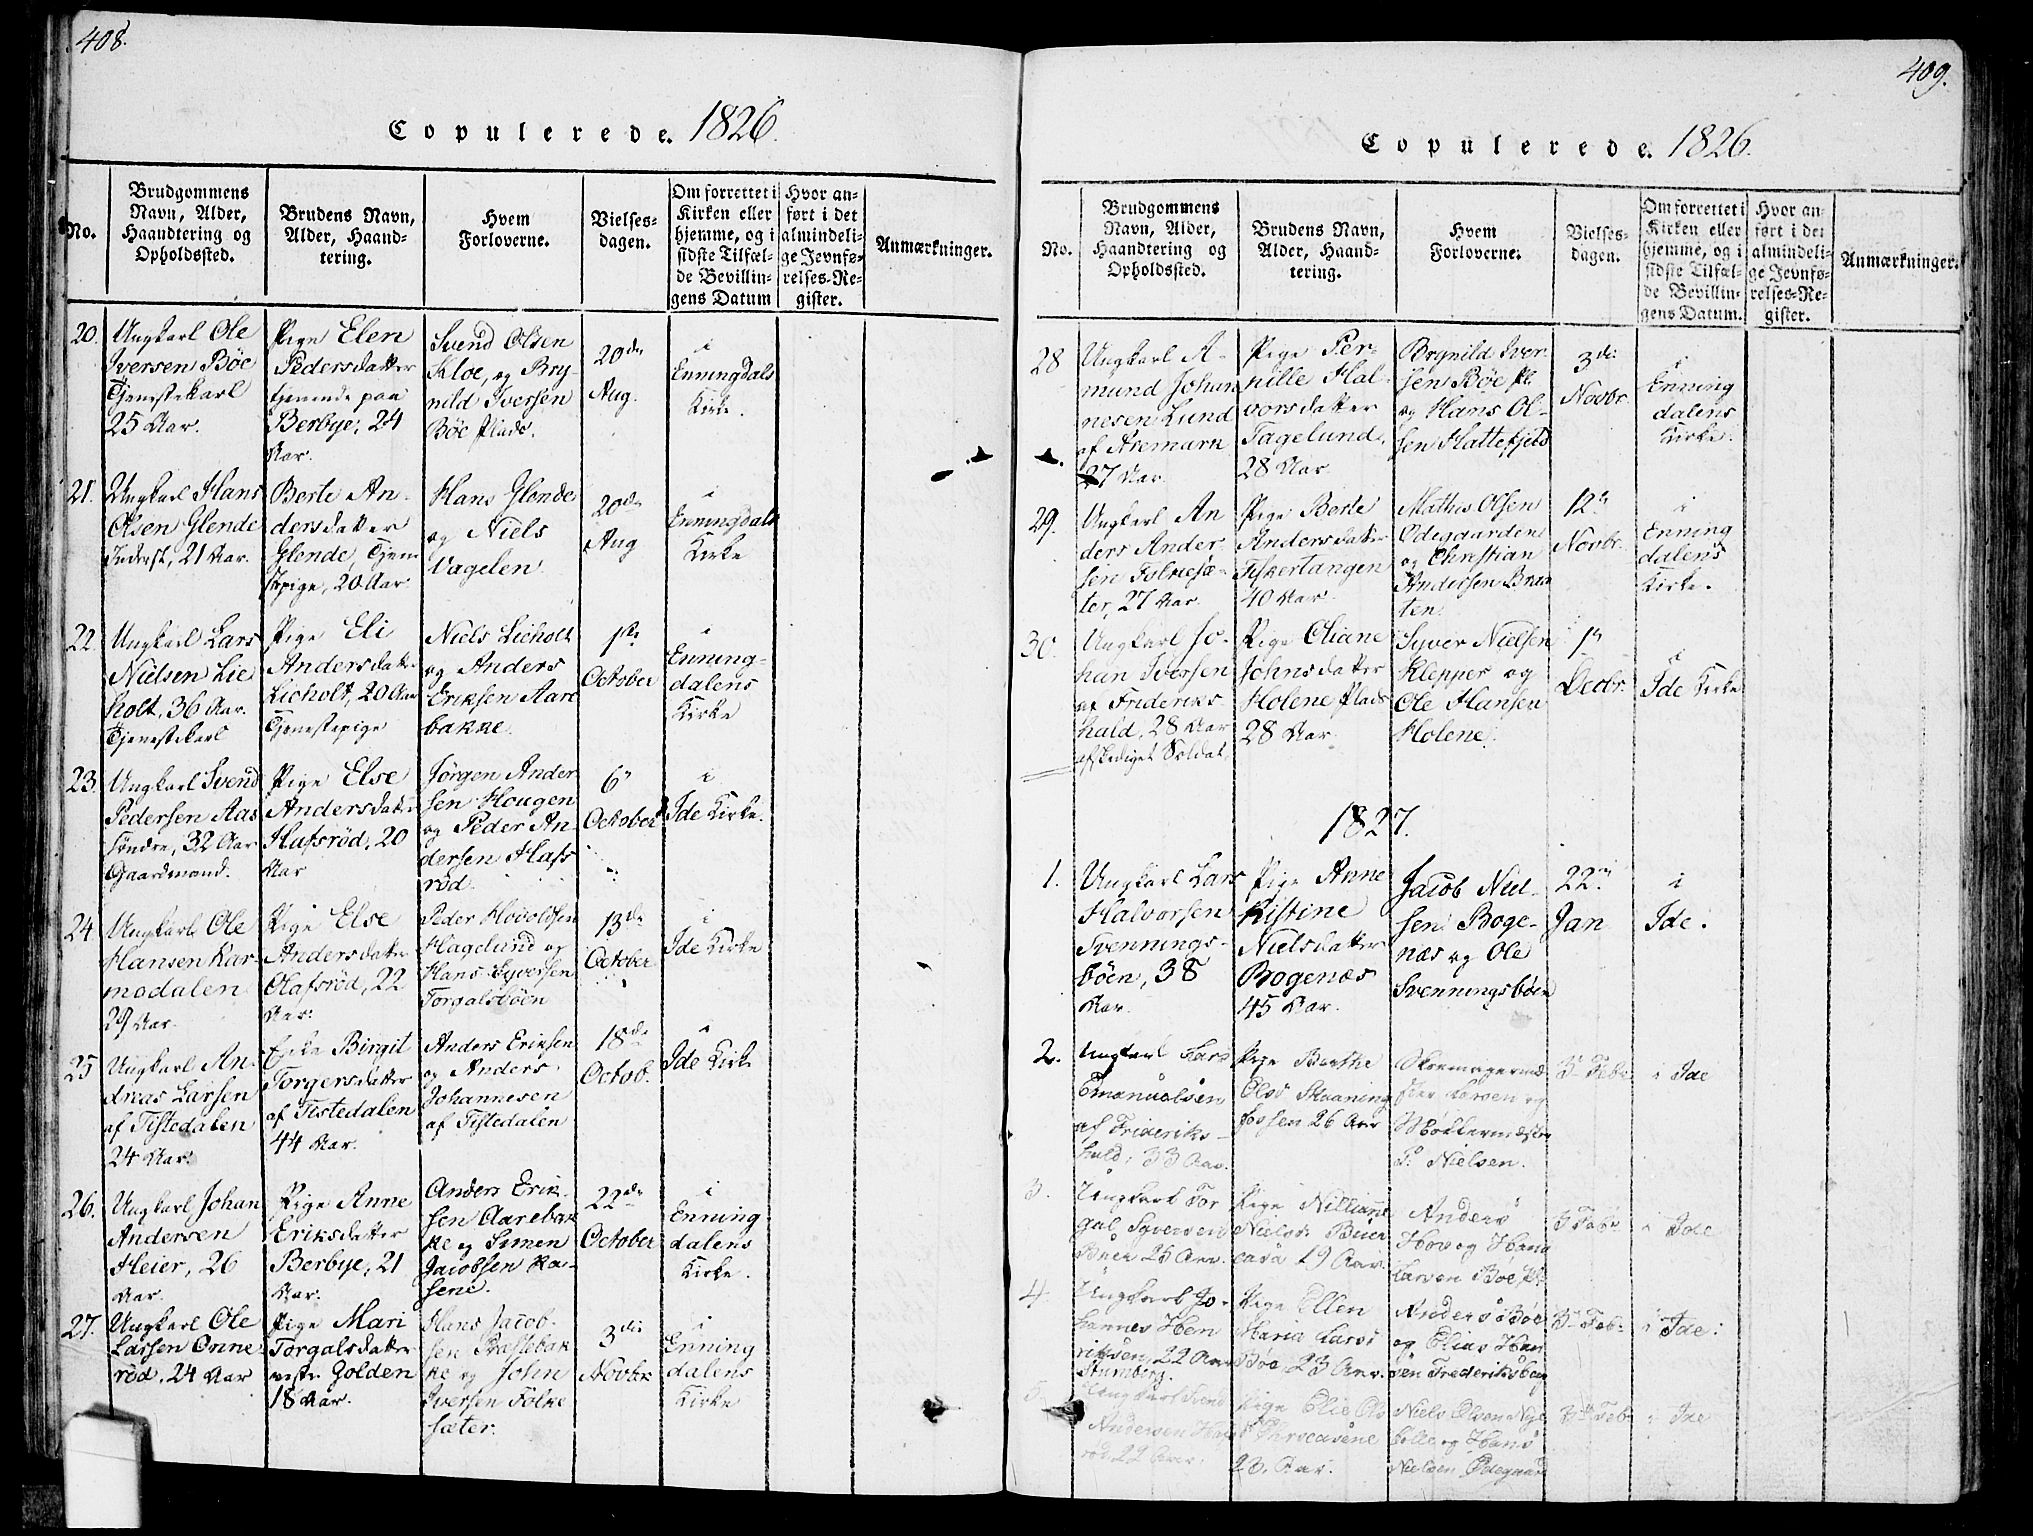 408.
Copulerede. 1826.
No.
Brudgommens
Navn, Alder,
Haandtering og
Opholdssted.
Brudens Navn,
Alder, Haand-
tering.
Hvem
Forloverne.
Vielses-
dagen.
Om forrettet i
Kirken eller
hjemme, og i
sidste Tilfæl-
de Bevillin-
gens Datum
Hvor an-
ført i det
almindeli-
ge Jevnfø-
relses-Re-
gister.
Anmærkninger.
20.
Ungkarl Ole
Iversen Böe
Tjenestekarl
25 Aar.
Pige Elen
Pedersdatter
tjenende paa
Berbye, 24
Aar.
Svend Olsen
Kloe, og Bry-
nild Iversen
Böe Plads.
20de
Aug.
i
Enningdals
Kirke.
21.
Ungkarl Hans
Olsen Glende
Inderst, 21 Aar.
Berte An-
dersdatter
Glende, Tjene
stepige, 20 Aar.
Hans Glende
og Niels
Vagelen.
20de
Aug
i
Enningdals
Kirke
22.
Ungkarl Lars
Nielsen Lie
holt, 36 Aar.
Tjenestekarl
Pige Eli
Andersdatter
Lieholt, 20 Aar
Tjenestepige
Niels Lieholt
og Anders
Eriksen Aare
bakke.
1ste
October
i
Enning-
dalens
Kirke
23.
Ungkarl Svend
Pedersen Aas
söndre, 32 Aar
Gaardmand.
Pige Else
Andersdatter
Hafsröd, 20
Aar
Jörgen Ander
sen Hougen
og Peder An
dersen Hafs
röd.
6te
October
i
Ide Kirke.
24.
Ungkarl Ole
Hansen Kar-
modalen
29 Aar.
Pige Else
Andersdatter
Olafsröd, 22
Aar.
Peder Hovoldsen
Hagelund og
Hans Syversen
Torgalsböen
13de
October
i
Ide Kirke
25
Ungkarl An-
dreas Larsen
af Tistedalen
24 Aar.
Enke Birgit
Torgersdatter
af Tistedalen
44 Aar.
Anders Eriksen
og Anders
Johannesen
af Tistedalen
18de
Octob.
i
Ide Kirke
26.
Ungkarl Johan
Andersen
Heier, 26
Aar.
Pige Anne
Eriksdatter
Berbye, 21
Aar.
Anders Erik-
sen Aarebak
ke og Simen
Jacobsen Ka-
sene.
22de
October
i
Enning
dalens
Kirke.
27.
Ungkarl Ole
Larsen Onne
röd, 24 Aar
Pige Mari
Torgalsdatter
vestr. Golden
18 Aar.
Hans Jacob-
sen Præstebak
ke og John
Iversen Folke
sæter.
3die
Novbr.
i
Enning
dalens
Kirke
409.
Copulerede. 1826.
No.
Brudgommens
Navn, Alder,
Haandtering og
Opholdssted.
Brudens Navn,
Alder, Haand-
tering.
Hvem
Forloverne.
Vielses-
dagen.
Om forrettet i
Kirken eller
hjemme, og i
sidste Tilfæl-
de Bevillin-
gens Datum.
Hvor an-
ført i det
almindeli-
ge Jevnfø-
relses-Re-
gister.
Anmærkninger.
28
Ungkarl A-
mund Johan
nesen Lund
af Aremark
27 Aar.
Pige Per-
nille Hal-
vorsdatter
Tagelund,
28 Aar.
Brynild Iver
sen Böe Pl.
og Hans Ol-
sen Hattefjeld
3die
Novbr.
i
Enning
dalens
Kirke.
29.
Ungkarl An
ders Ander-
sen Folkesæ-
ter, 27 Aar.
Pige Berte
Andersdatter
Fiskertangen
40 Aar.
Mathis Olsen
Ödegaarden
og Christian
Andersen Braa
ten.
12te
Novbr.
i
Enning
dalens
Kirke.
30.
Ungkarl Jo-
han Iversen
af Frideriks
hald, 28 Aar
afskediget Soldat.
Pige Oliane
Johnsdatter
Holene Plads
28 Aar.
Syver Nielsen
Klepper og
Ole Hansen
Holene.
1te
Decbr.
i
Ide Kirke
1827.
1.
Ungkarl Lars
Halvorsen
Svennings-
böen, 38
Aar.
Pige Anne
Kistine
Nielsdatter
Bogenæs
45 Aar.
Jacob Niel-
sen Boge-
næs og Ole
Svenningsböen
22de
Jan
i
Ide.
2.
Ungkarl Lars
Emanuelsen
af Frideriks-
hald, 33 Aar.
Pige Berthe
Olsd Skaaning
fossen 26 Aar
Skoemagerme
ster Larsen og
Möllermester
P. Nielsen.
3 Febr
i Ide
3.
Ungkarl Tor
gal Syversen
Buer 25 Aar.
Pige Nilliane
Nielsd. Buer
casa 19 Aar.
Anders
Hov og Hans
Larsen Böe Pl.
3 Febr
i Ide
4.
Ungkarl Jo-
hannes Hen
riksen, 22 Aar
Stumberg.
Pige Ellen
Maria Larsd
Böe 23 Aar.
Anders Böe
og Elias Han
sen Frederiksberg
3 Feb.
i Ide.
5.
Ungkarl Svend
Andersen
röd 22 Aar.
Pige Elie Ols
23. Aar.
Niels Olsen
og Hans
Nielsen Ödegaard
3 Feb
i Ide